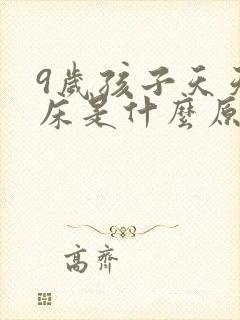 9歲孩子天天
床是什麼原
高齊